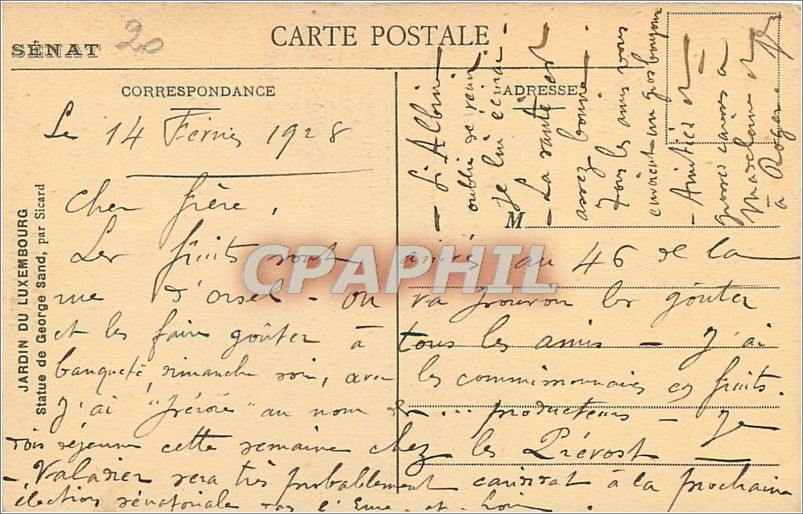 SÉNAT
20
CARTE POSTALE
CORRESPONDANCE
ADRESSE
JARDIN DU LUXEMBOURG
Statue de George Sand, par Sicard
Le 14 Février 1928
Cher frère,
Les fruits sont arrivés au 46 de la
rue d'Orsel - On va pouvoir les goûter
et les faire goûter à tous les amis - J'ai
banqueté dimanche soir, avec les commissionnaires es fruits.
J'ai "présidé" au nom de ... producteurs - Je
dois déjeuner cette semaine chez les Prévost -
- Valadier sera très probablement candidat à la prochaine
élection sénatoriale
M
CPAPHIL
- Si Albin
oublie de venir
je lui écrirai -
- La santé est
assez bonne.
Tous les amis vous
envoient un gros bonjour
- Amitiés et
grosses caisses à
Marcelaine et
à Roger